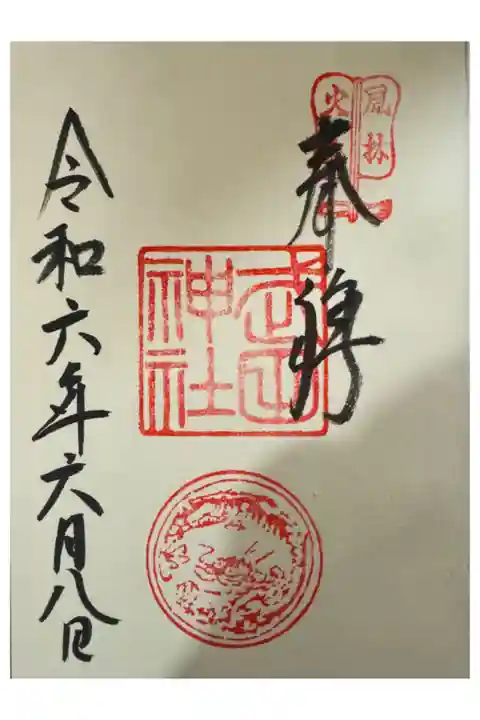 風林
火
奉拝
武田
神社
令和六年六月八日